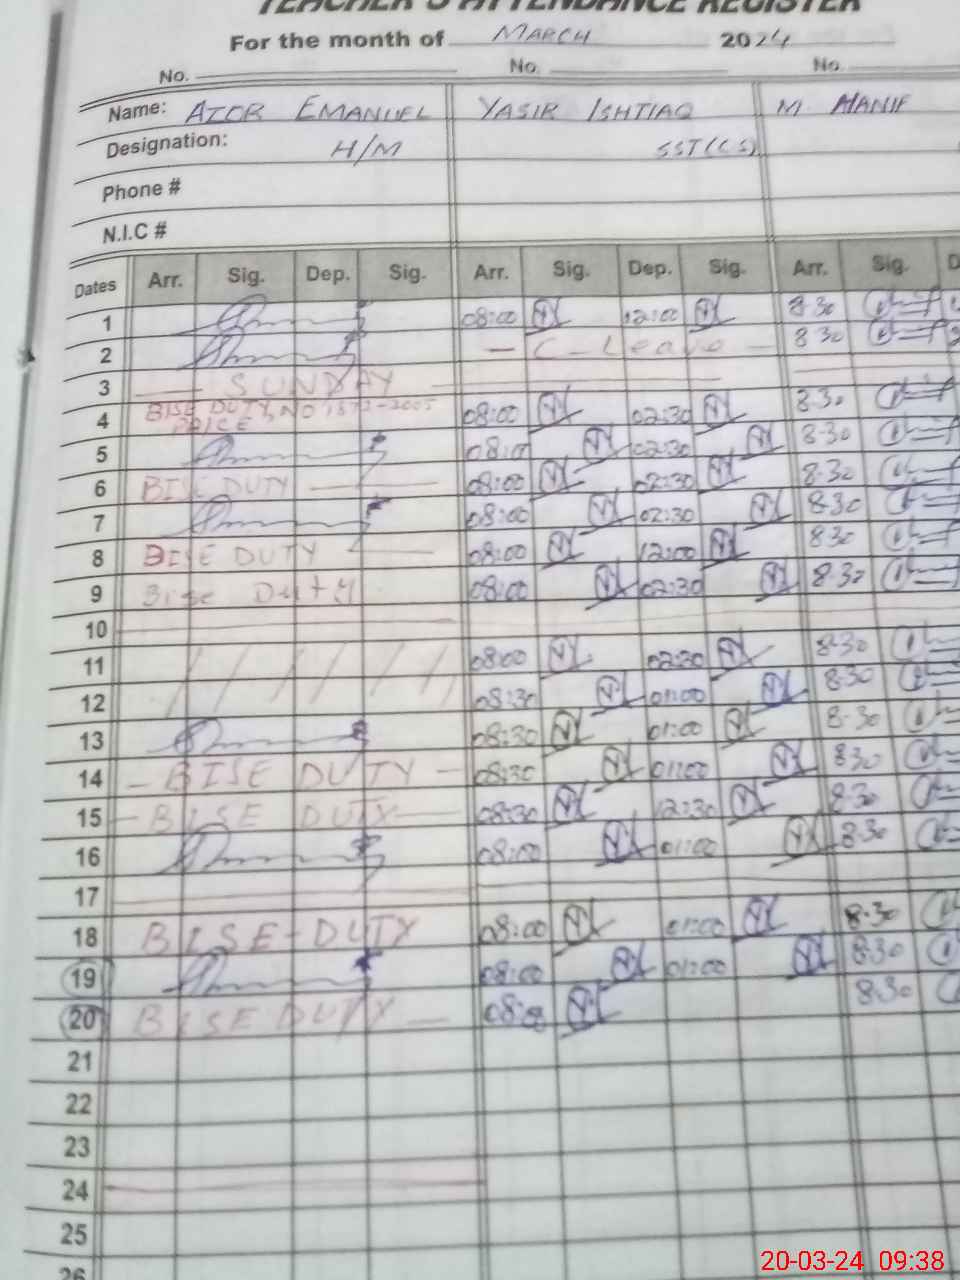 TEACHER'S ATTENDANCE REGISTER
For the month of MARCH 2024
No. No. No.
Name: AZOR EMANUEL YASIR ISHTIAQ M HANIF
Designation: H/M SST(CS)
Phone #
N.I.C #
Dates Arr. Sig. Dep. Sig. Arr. Sig. Dep. Sig. Arr. Sig. D
1 08:00 12:00 8-30
2 - C - Leave - 8 30
3 SUNDAY
4 BISE DUTY, NO 1572-2005 08:00 02:30 8-30
5 02:30 8-30
6 BISE DUTY 08:00 02:30 8-30
7 08:00 02:30 8-30
8 BISE DUTY 08:00 12:00 8-30
9 Bise Duty 08:00 02:30 8-30
10
11 08:00 02:30 8-30
12 08:30 01:00 8-30
13 08:30 01:00 8-30
14 - BISE DUTY - 08:30 01:00 8 30
15 - BISE DUTY - 08:30 12:30 8-30
16 08:00 01:00 8-30
17
18 BISE-DUTY 08:00 01:00 8-30
19 08:00 01:00 8-30
20 BISE DUTY 8-30
21
22
23
24
25
26
20-03-24 09:38